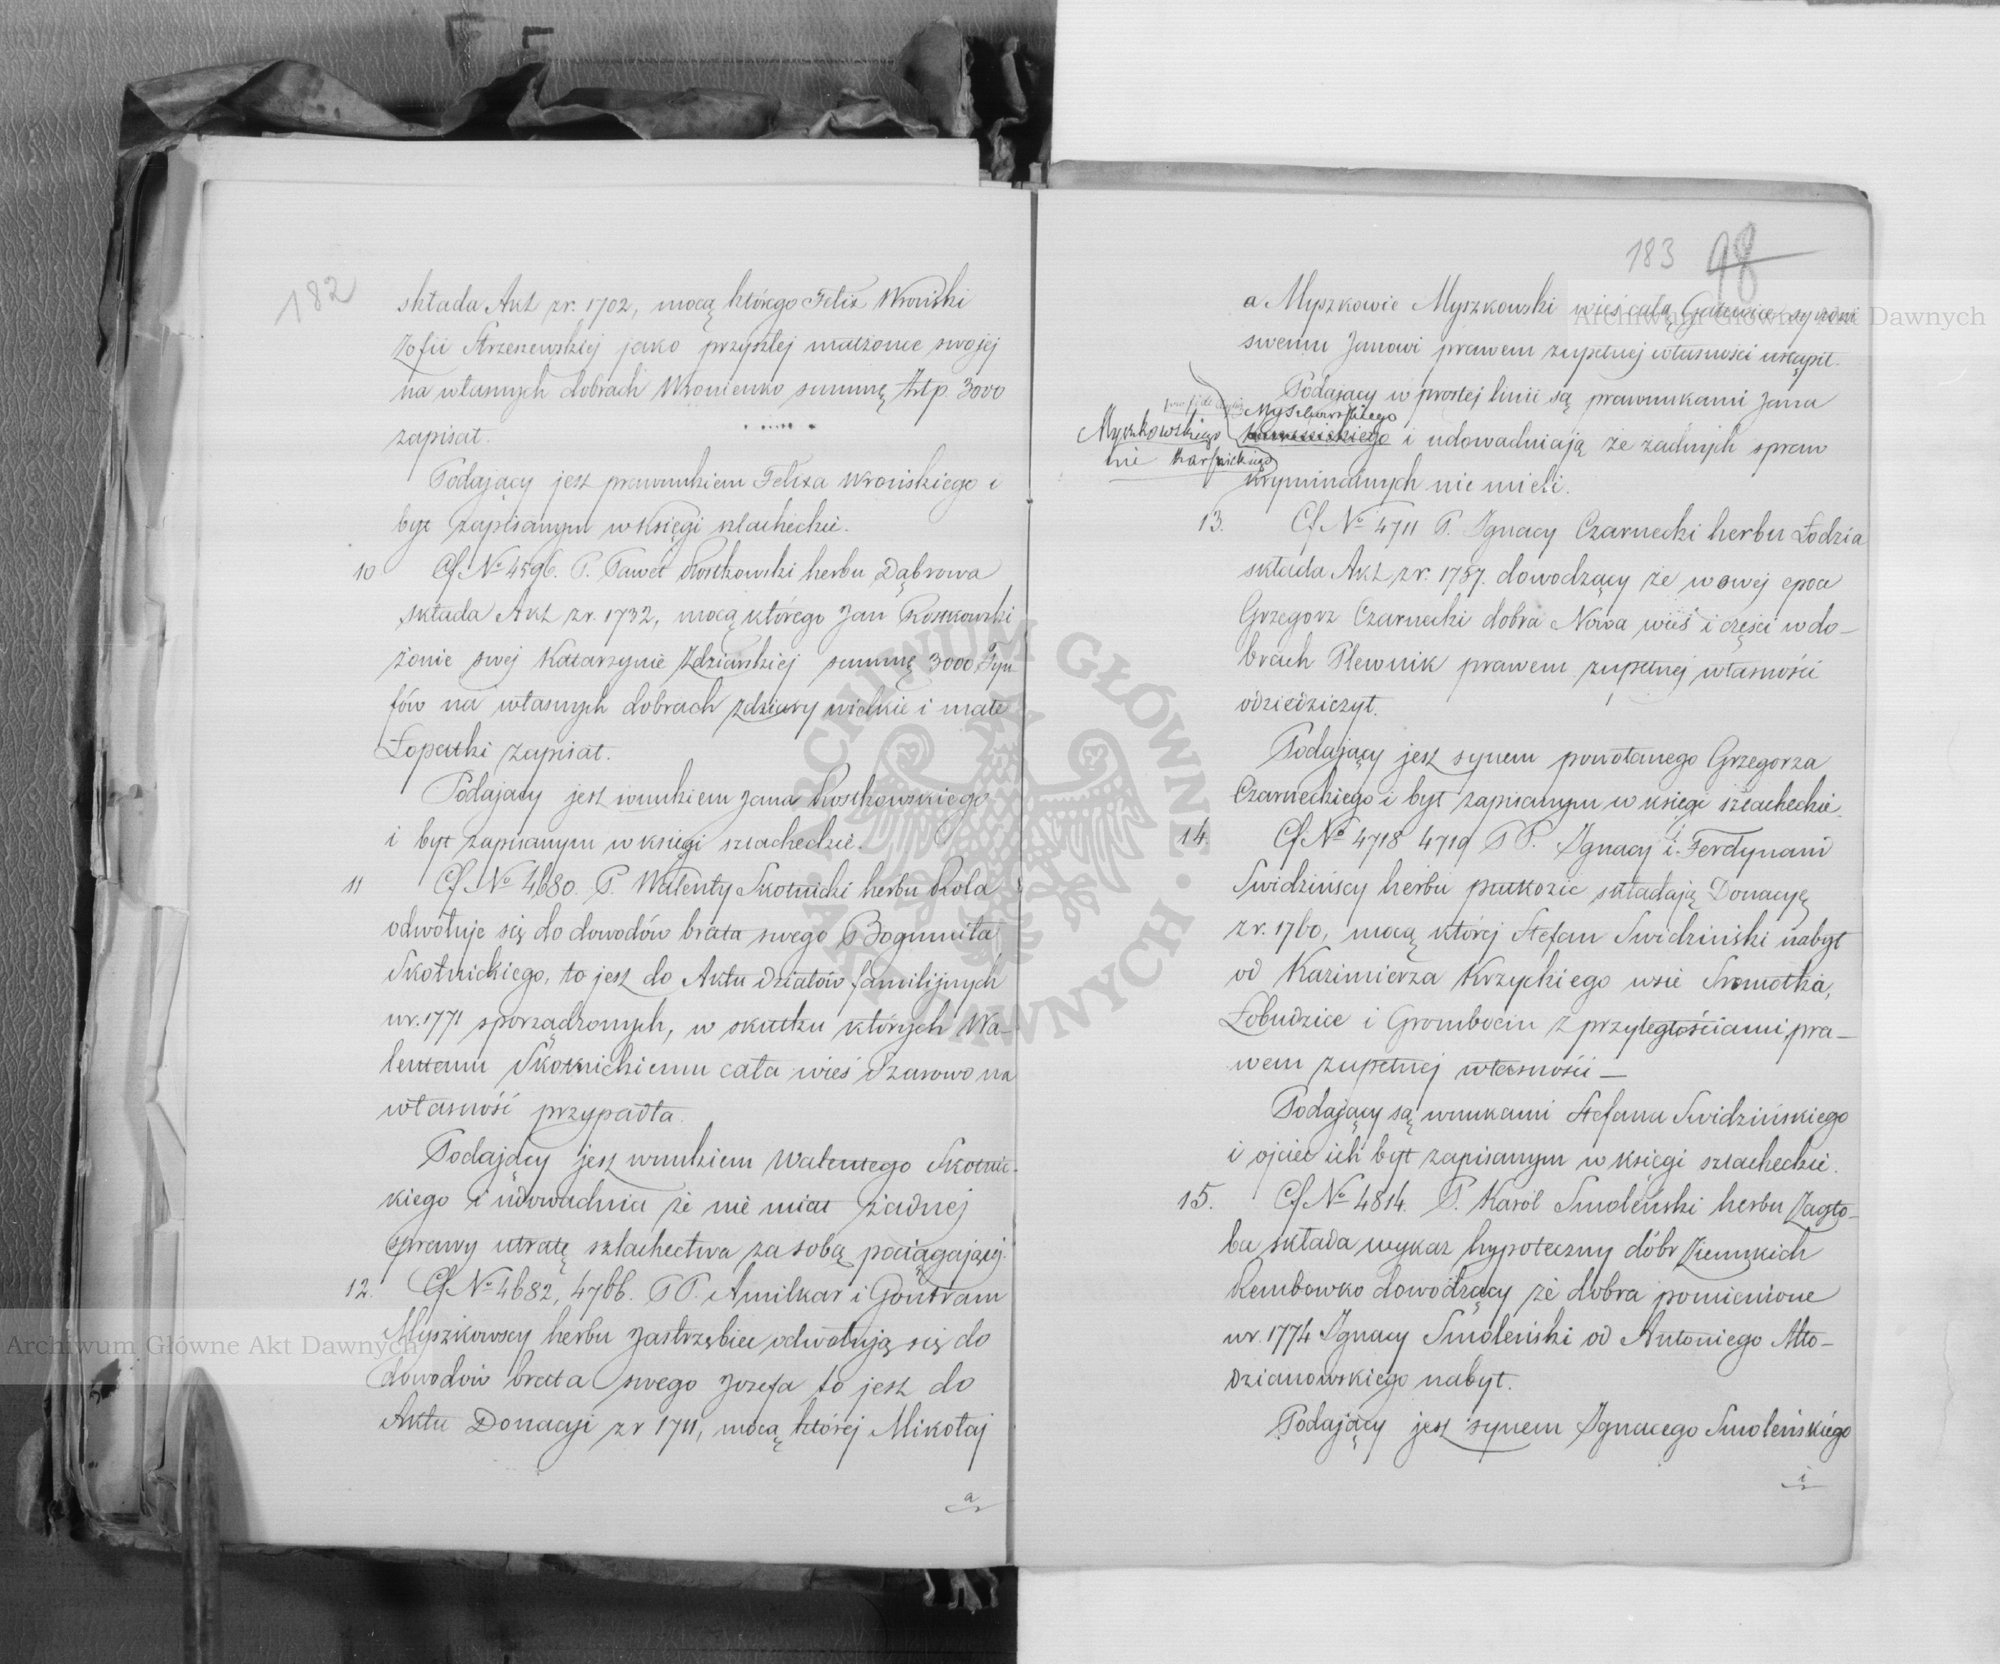 182
składa Akt z r. 1702, mocą którego Felix Wroński
Zofii Strzeszewskiej jako przyszłej małżonce swojej
na własnych dobrach Wronienko summę Złtp. 3000
zapisał.
Podający jest prawnukiem Felixa Wrońskiego i
był zapisanym w księgi szlacheckie.
10 Cf No 4596. P. Paweł Rostkowski herbu Dąbrowa
składa Akt z r. 1732, mocą którego Jan Rostkowski
żonie swej Katarzynie Zdziarskiej summę 3000 Tyn-
fów na własnych dobrach Zdziary wielkie i małe
Łopatki zapisał.
Podający jest wnukiem Jana Rostkowskiego
i był zapisanym w księgi szlacheckie.
11 Cf No 4680. P. Walenty Skotnicki herbu Rola
odwołuje się do dowodów brata swego P Bogumiła
Skotnickiego, to jest do Aktu działów familijnych
w r. 1771 sporządzonych, w skutku których Wa-
lentemu Skotnickiemu cała wieś Szarowo na
własność przypadła.
Podający jest wnukiem Walentego Skotnic-
kiego i udowadnia że nie miał żadnej
sprawy utratę szlachectwa za sobą pociągającej.
12. Cf No 4682, 4766. PP. Amilkar i Gontram
Myszkowscy herbu Jastrzębiec odwołują się do
dowodów brata swego Jozefa to jest do
Aktu Donacyi z r 1711, mocą której Mikołaj
a
183 98
a Myszkowic Myszkowski wieś całą Galewice synowi
swemu Janowi prawem zupełnej własności ustąpił.
Podający w prostej linii są prawnukami Jana
Myszkowskiego
Myszkowskiego i udowadniają że żadnych spraw
nie Karśnickiego
kryminalnych nie mieli.
13. Cf No 4711 P. Ignacy Czarnecki herbu Łodzia
składa Akt z r. 1787. dowodzący że w owej epoce
Grzegorz Czarnecki dobra Nowa wieś i części w do-
brach Plewnik prawem zupełnej własności
odziedziczył.
Podający jest synem powołanego Grzegorza
Czarneckiego i był zapisanym w księgi szlacheckie.
14. Cf No 4718 4719 PP. Ignacy i Ferdynand
Swidzińscy herbu Półkozic składają Donacyę
z r. 1760, mocą której Stefan Swidziński nabył
od Kazimierza Krzyckiego wsie Sromotka,
Łobudzice i Grombocin z przyległościami, pra-
wem zupełnej własności —
Podający są wnukami Stefana Swidzińskiego
i ojciec ich był zapisanym w księgi szlacheckie.
15. Cf No 4814. P. Karol Smoleński herbu Zagło-
ba składa wykaz hypoteczny dóbr Ziemskich
Rembowko dowodzący że dobra pomienione
w r. 1774 Ignacy Smoleński od Antoniego Mło-
dzianowskiego nabył.
Podający jest synem Ignacego Smoleńskiego
i
Archiwum Główne Akt Dawnych
Archiwum Główne Akt Dawnych
ARCHIWUM GŁÓWNE AKT DAWNYCH